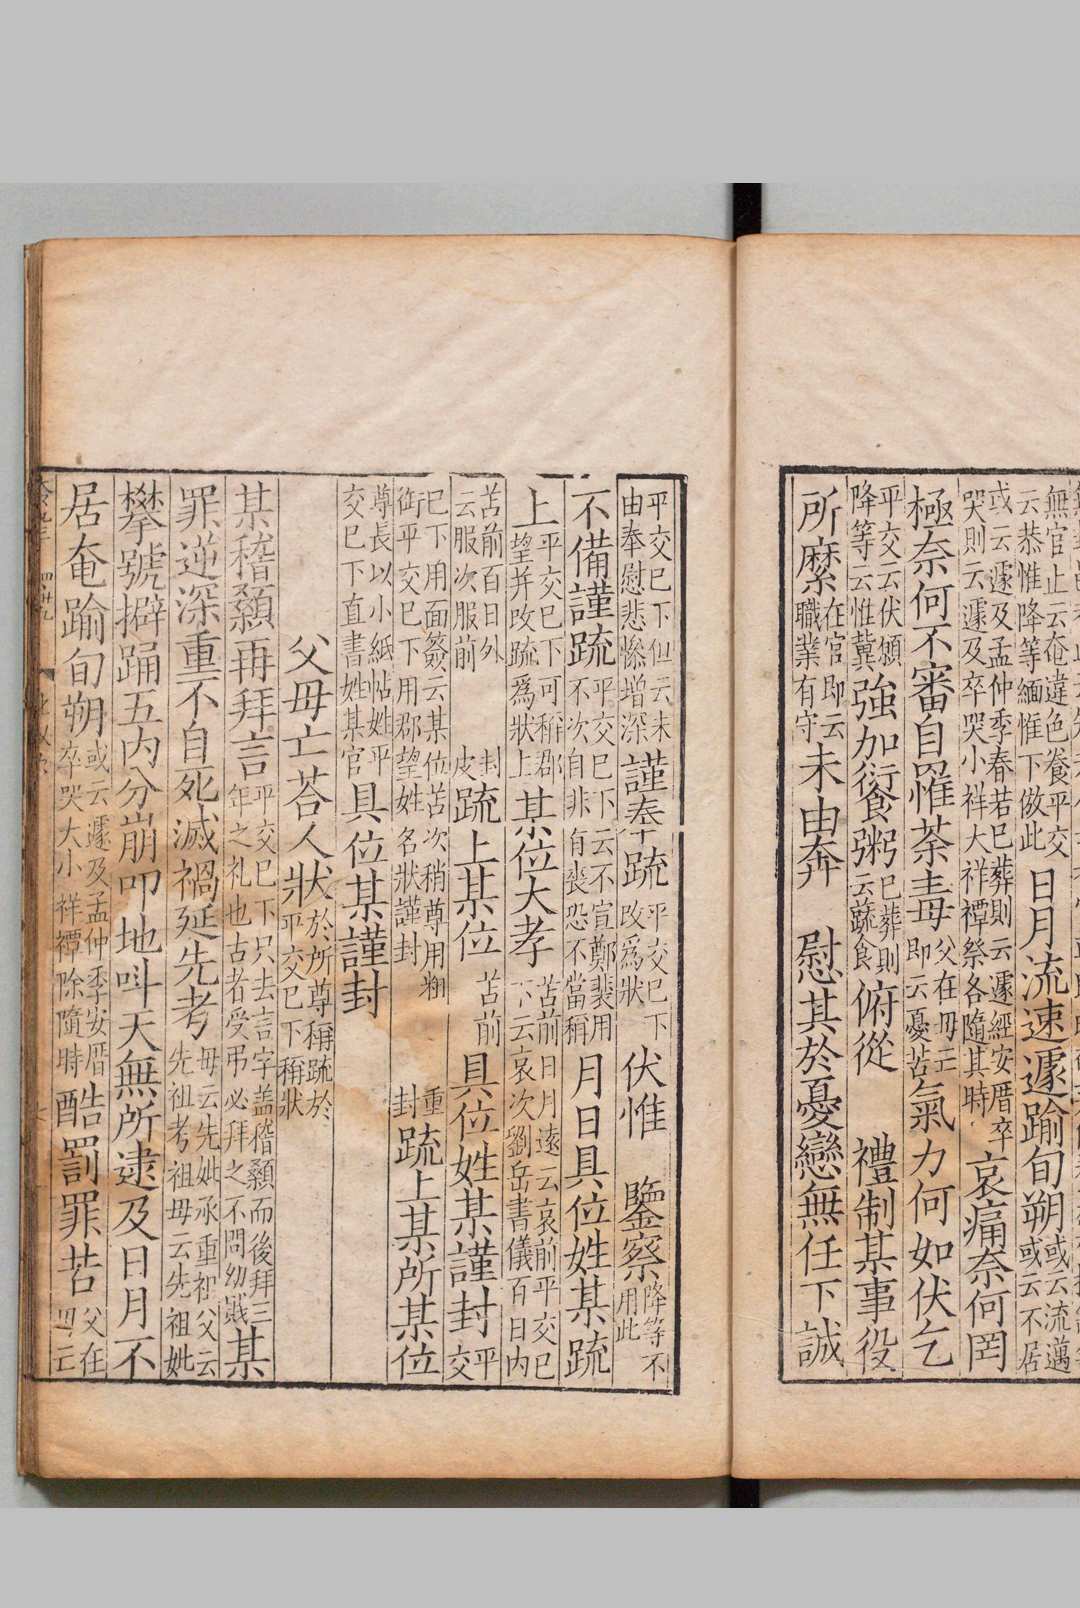 無官止云奄違色養平交云恭惟降等緬惟下倣此日月流速遽踰旬朔或云流邁或云不居
或云遽及孟仲季春若已葬則云遽經安厝卒哭則云遽及卒哭小祥大祥禫祭各隨其時哀痛奈何罔
極奈何不審自罹荼毒父在母亡即云憂苦氣力何如伏乞
平交云伏願降等云惟冀強加餰粥已葬則云蔬食俯從　禮制某事役
所縻在官即云職業有守未由奔　慰其於憂戀無任下誠
平交已下但云未由奉慰悲慘增深謹奉疏平交已下改為狀伏惟　鑒察降等不用此
不備謹疏平交已下云不宣鄭裴用不次自非有喪恐不當稱月日具位姓某疏
上平交已下可稱郡望并改疏為狀上某位大孝苫前日月遠云哀前平交已下云哀次劉岳書儀百日内
苫前百日外云服次服前　封皮疏上某位　苫前　具位姓某謹封平交
已下用面簽云某位苫次稍尊用糊銜平交已下用郡望姓名狀謹封　重封疏上某所某位
尊長以小紙帖姓平交已下直書姓某官具位某謹封
父母亡荅人狀於所尊稱疏於平交已下稱狀
某稽顙再拜言平交已下只去言字蓋稽顙而後拜三年之礼也古者受弔必拜之不問幼賤某
罪逆深重不自死滅禍延先考母云先妣承重祖父云先祖考祖母云先祖妣
攀號擗踊五内分崩叩地叫天無所逮及日月不
居奄踰旬朔或云遽及孟仲季安厝卒哭大小祥禫除隨時酷罰罪苦父在